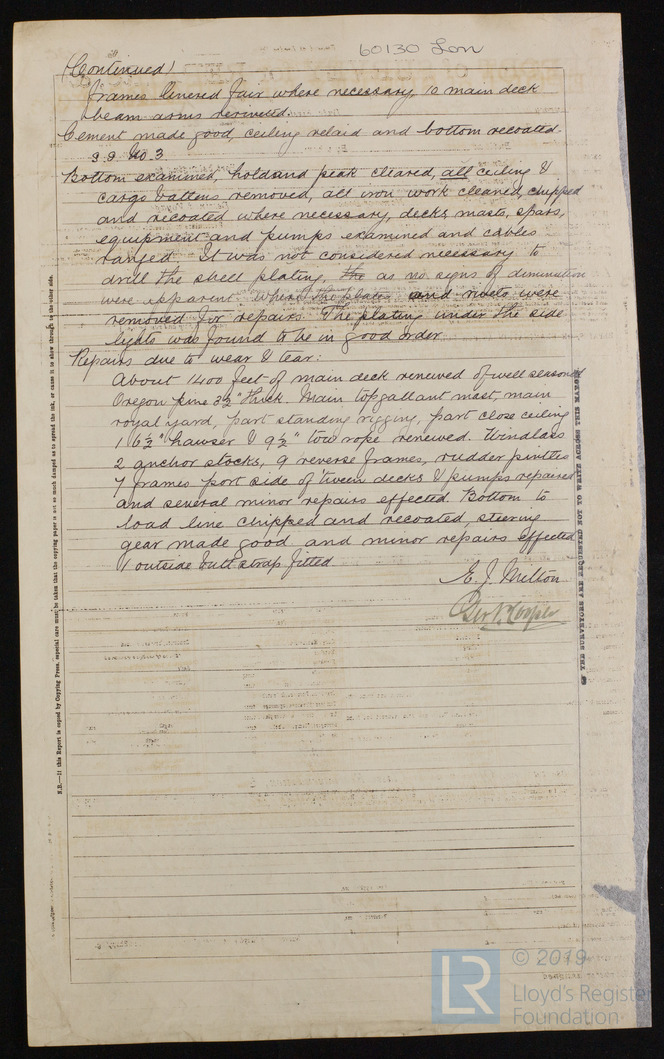 60130 Lon
(Continued)
frames linered fair where necessary, 10 main deck
beam arms reriveted.
Cement made good, ceiling relaid and bottom recoated.
S.S. No 3
Bottom examined, hold and peak cleared, all ceiling &
cargo battens removed, all iron work cleaned, chipped
and recoated where necessary, decks, masts, spars,
equipment and pumps examined and cables
ranged. It was not considered necessary to
drill the shell plating, the as no signs of diminution
were apparent where the plates and rivets were
removed for repairs. The plating under the side
lights was found to be in good order.
Repairs due to wear & tear:
About 1400 feet of main deck renewed of well seasoned
Oregon pine 3½" thick. Main topgallant mast, main
royal yard, part standing rigging, part close ceiling
1 6½" hawser & 9½" tow rope renewed. Windlass
2 anchor stocks, 9 reverse frames, rudder pintles
7 frames port side of 'tween decks & pumps repaired
and several minor repairs effected Bottom to
load line chipped and recoated, steering
gear made good and minor repairs effected
1 outside butt strap fitted
E. J. Milton
Geo. Cooper
N.B.—If this Report is copied by Copying Press, especial care must be taken that the copying paper is not so much damped as to spread the ink, or cause it to show through to the other side.
THE SURVEYORS ARE REQUESTED NOT TO WRITE ACROSS THIS MARGIN.
LR
© 2019
Lloyd's Register
Foundation